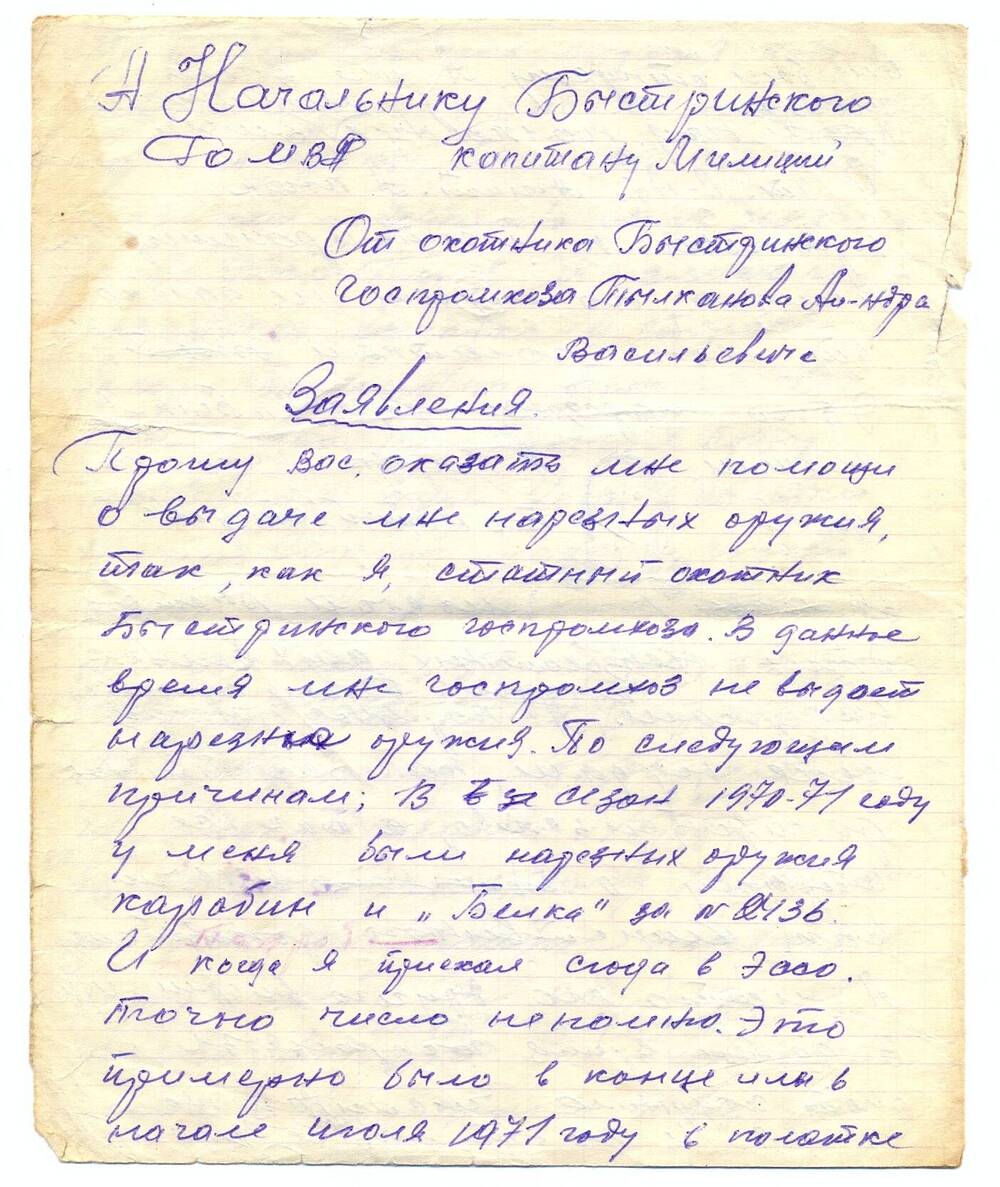 Начальнику Быстринского
капитану Милиций
От охотника Быстринского
Госпромхоза Тылканова Ал-ндра
Васильевича
Заявления.
Прошу Вас, оказать мне помощи
о выдаче мне нарезных оружия,
так, как я, статный охотник
Быстринского госпромхоза. В данное
время мне госпромхоз не выдает
нарезное оружия. По следующим
причинам; В сезон 1970-71 году
у меня были нарезных оружия
карабин и „Белка" за №
И когда я приехал сюда в Эссо.
точно число непомню. Это
примерно было в конце или в
начале июля 1971 году в полотке